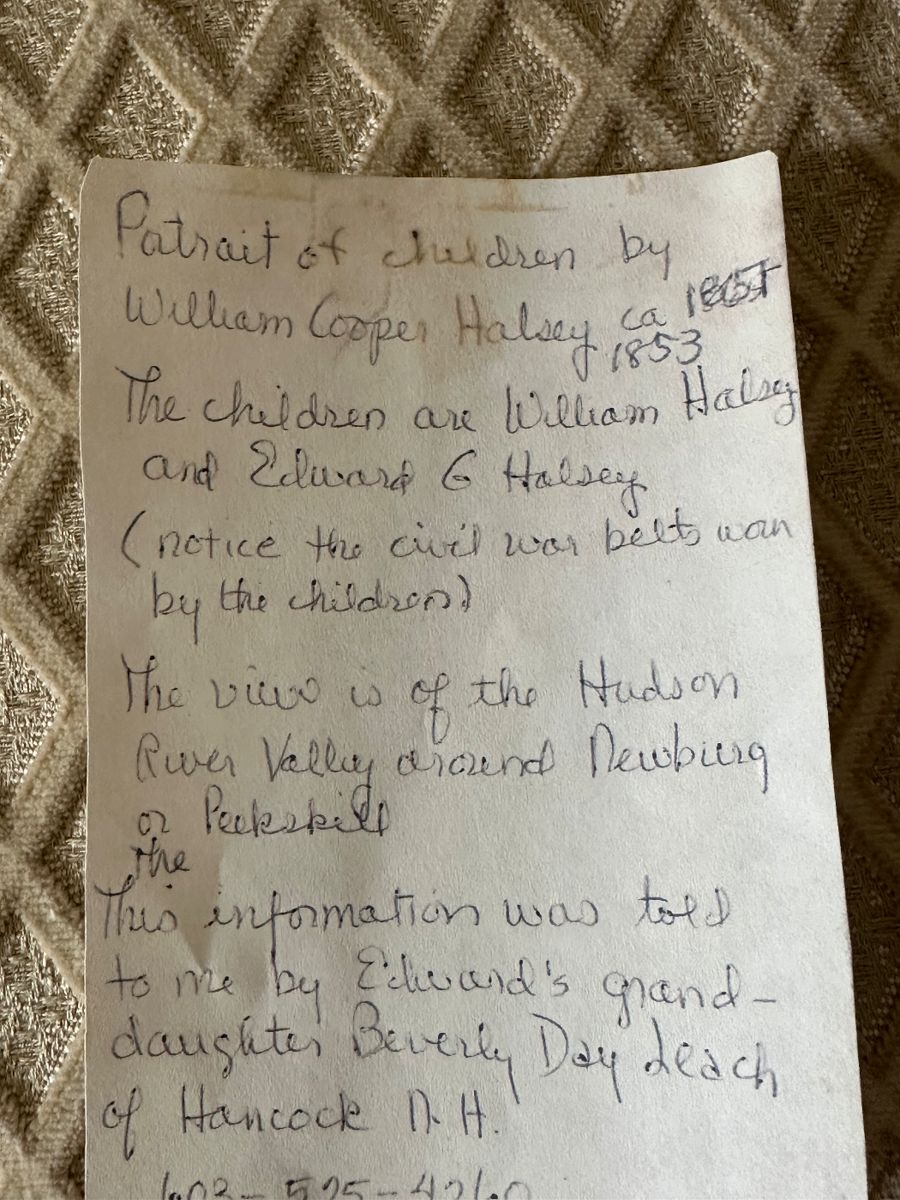 Patrait of children by
William Cooper Halsey ca 1865
1853
The children are William Halsey
and Edward G Halsey
(notice the civil war belts worn
by the children)
The view is of the Hudson
River Valley around Newburg
or Peekskill
the
This information was told
to me by Edward's grand-
daughter Beverly Day Leach
of Hancock N.H.
603-525-4260